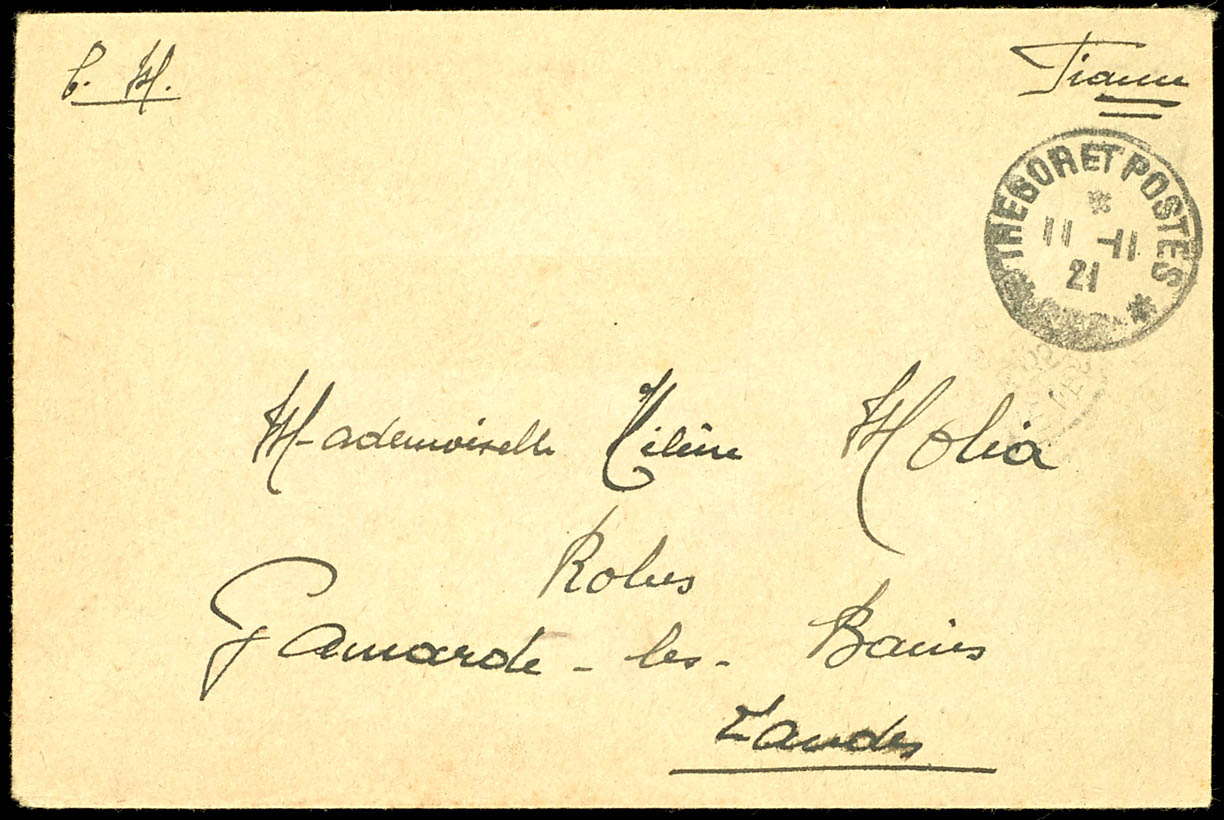 C. M.
France
TRESOR ET POSTES
* 
11 -11
21
Mademoiselle Hélène Molia
Robes
Gamarde-les-Bains
Landes